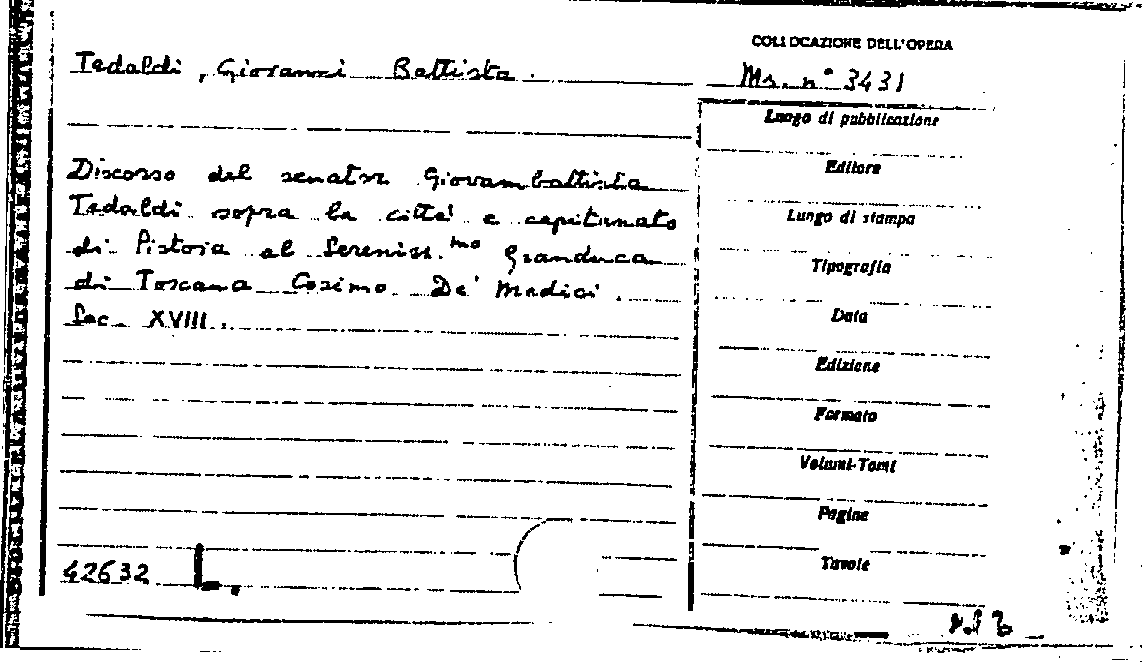 COLLOCAZIONE DELL'OPERA
Tedaldi, Giovanni Battista.
Ms. n° 3431
Luogo di pubblicazione
Editore
Luogo di stampa
Tipografia
Data
Edizione
Formato
Volumi-Tomi
Pagine
Tavole
Discorso del senator Giovambattista
Tedaldi sopra la città e capitanato
di Pistoia al Sereniss.mo Granduca
di Toscana Cosimo De' Medici.
Sec. XVIII.
42632